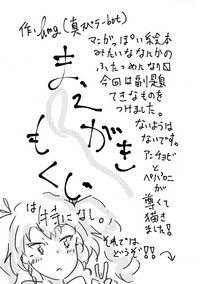 作:hmg(真スペラ-bot)
マンガっぽい絵本
みたいななんかの
ふたつめんなり回
今回は副題
てきなものを
つけました。
ないようは
ないです。
アンチョビ
と
ペパロニ
が
尊くて
描き
ました!
まえがき
もくじ
は特になし。
それでは
どうぞ!!